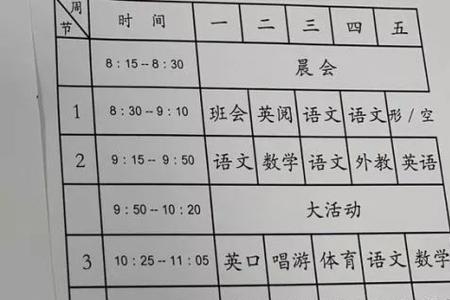 周
节 时 间 一 二 三 四 五
8：15－8：30 晨会
1 8：30－9：10 班会 英阅 语文 语文 形/空
2 9：15－9：50 语文 数学 语文 外教 英语
9：50－10：20 大活动
3 10：25－11：05 英口 唱游 体育 语文 数学